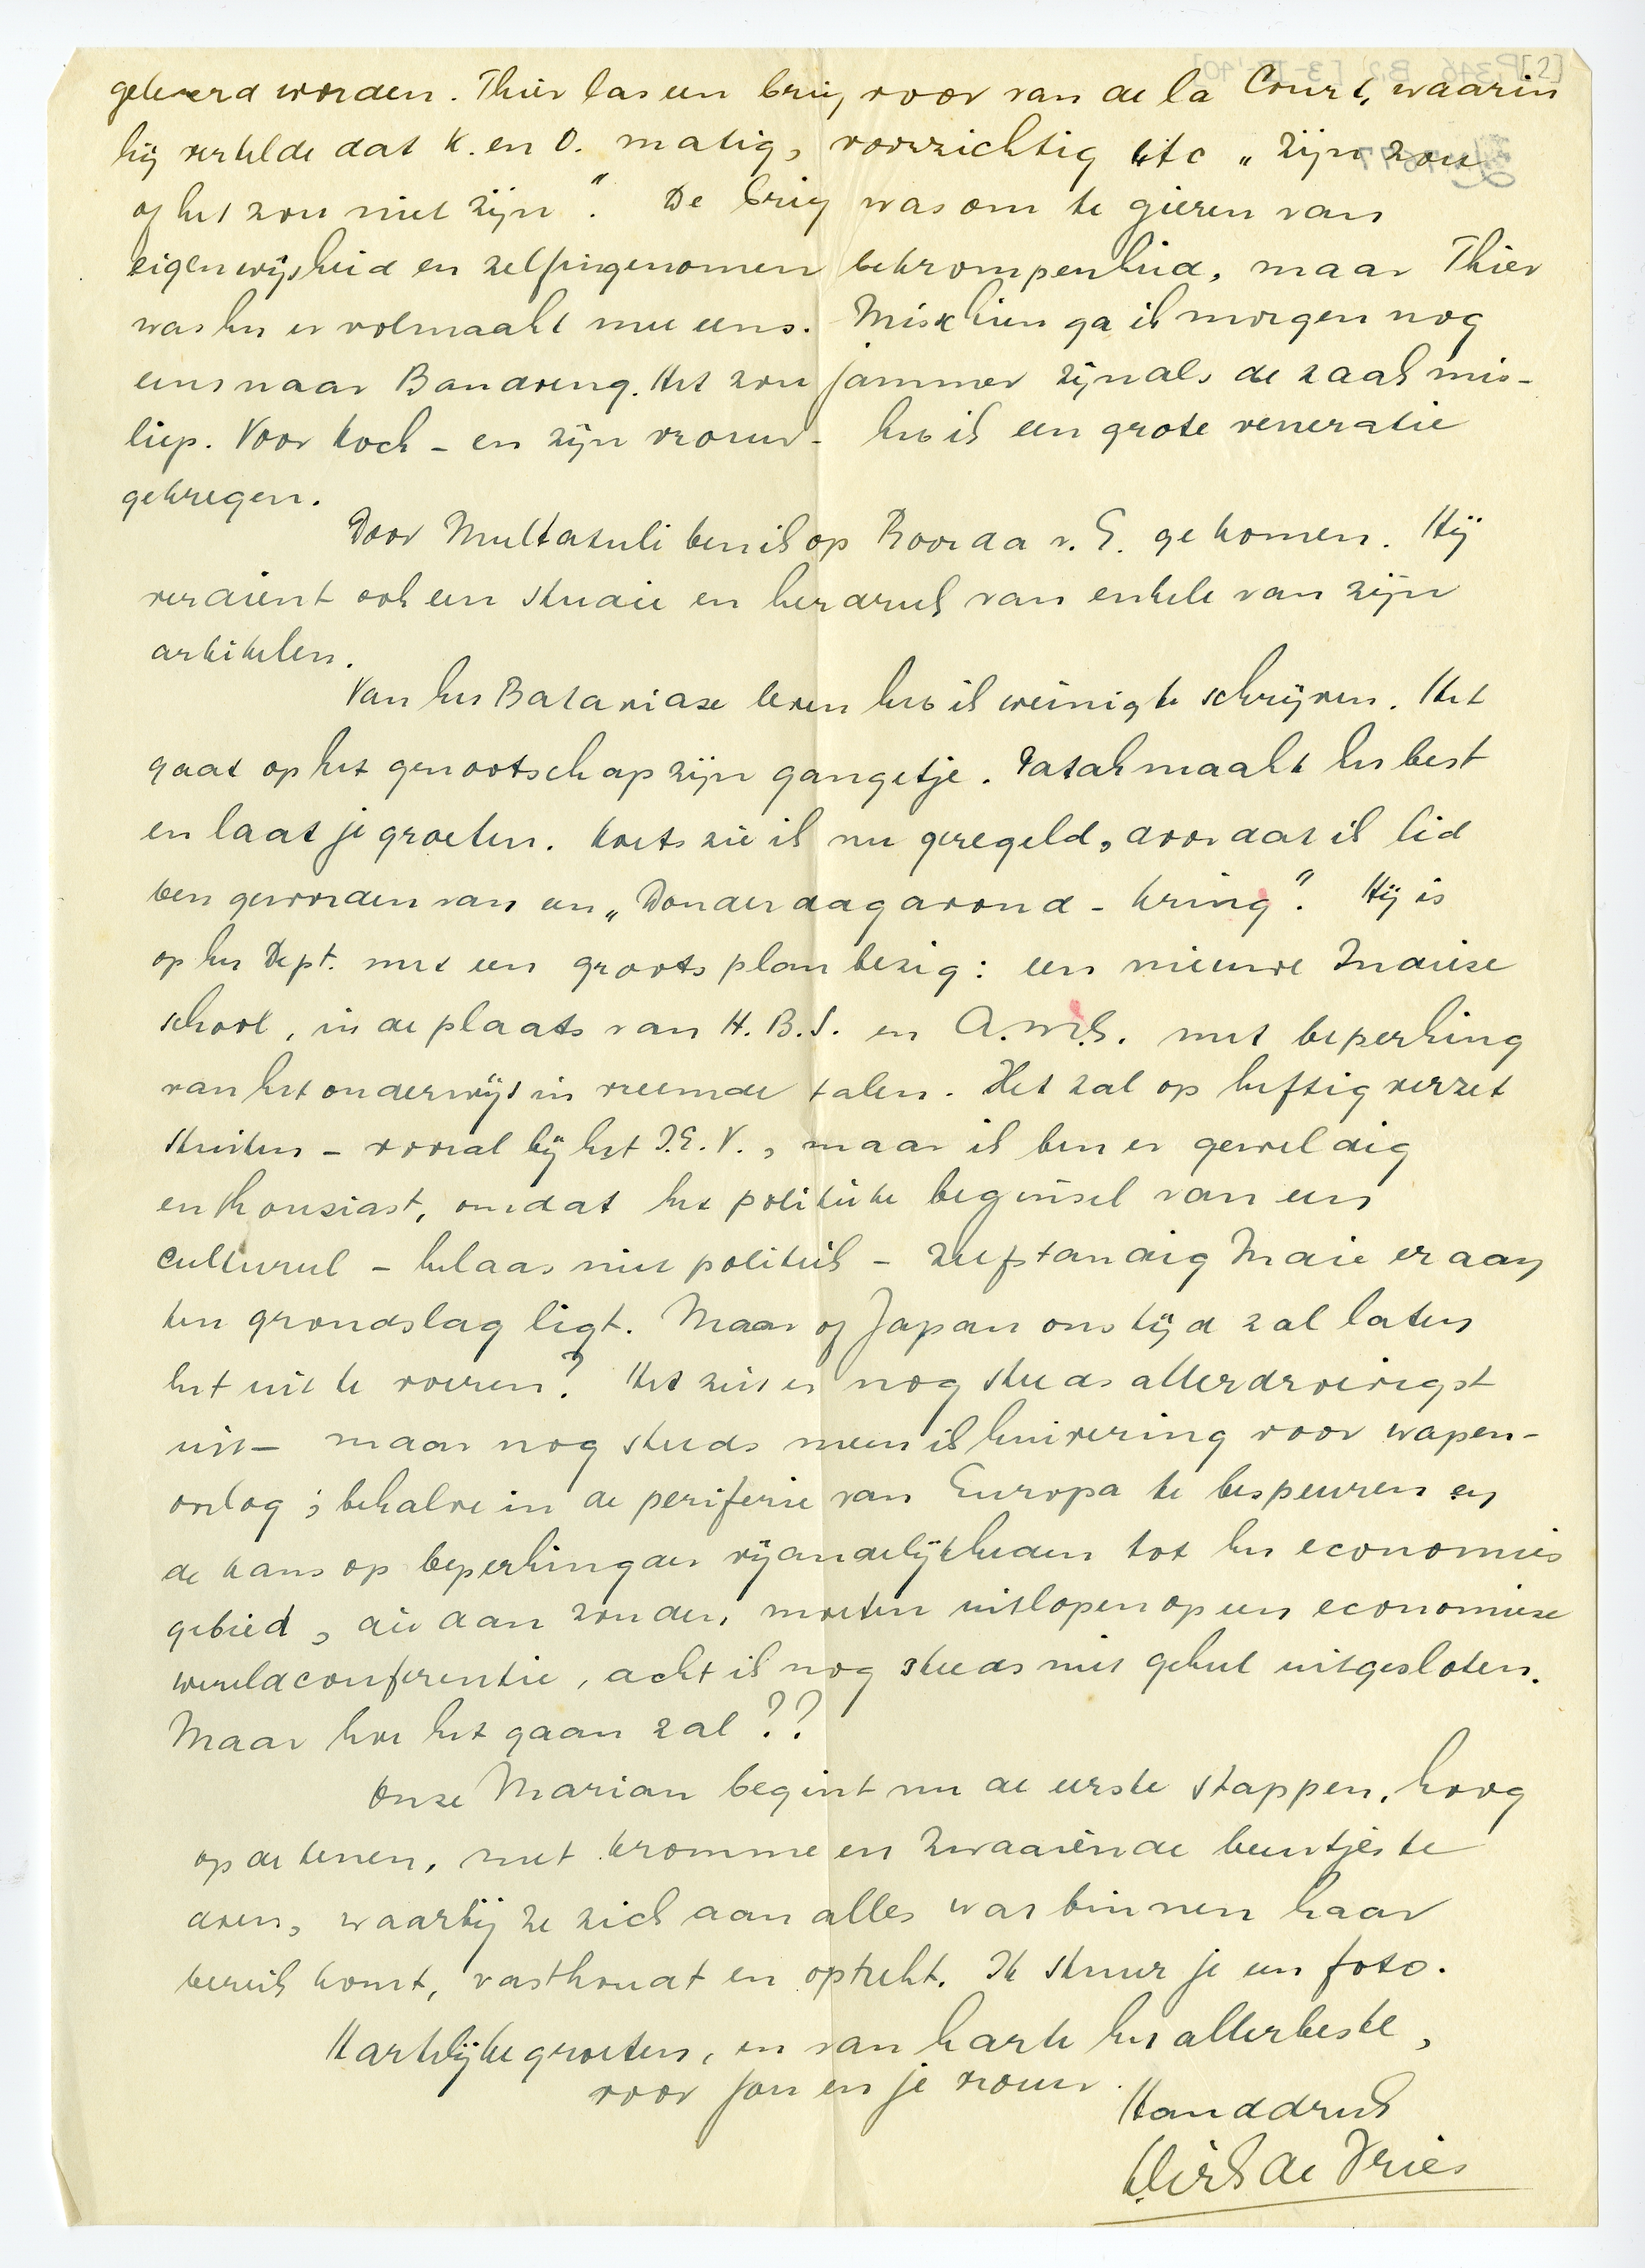 geleverd worden. Thier las een brief voor van de la Court, waarin
hij vertelde dat K. en O. matig, voorzichtig etc „zijn zou
of het zou niet zijn". De brief was om te gieren van
eigenwijsheid en zelfingenomen bekrompenheid, maar Thier
was het er volmaakt mee eens. Misschien ga ik morgen nog
eens naar Bandoeng. Het zou jammer zijn als de zaak mis-
liep. Voor Koch – en zijn vrouw – heb ik een grote veneratie
gekregen.
Door Multatuli ben ik op Roorda v. E. gekomen. Hij
verdient ook een studie en herdruk van enkele van zijn
artikelen.
Van het Bataviase leven heb ik weinig te schrijven. Het
gaat op het genootschap zijn gangetje. Tatah maakt het best
en laat je groeten. Koets zie ik nu geregeld, doordat ik lid
ben geworden van een „Donderdagavond-kring". Hij is
op het Dept. met een groots plan bezig: een nieuwe Indiese
school, in de plaats van H.B.S. en A.M.S. met beperking
van het onderwijs in vreemde talen. Het zal op heftig verzet
stuiten – vooral bij het I.E.V., maar ik ben er geweldig
enthousiast, omdat het politieke beginsel van een
cultureel – helaas niet politiek – zelfstandig Indië er aan
ten grondslag ligt. Maar of Japan ons tijd zal laten
het uit te voeren? Het ziet er nog steeds allerdroevigst
uit – maar nog steeds meen ik huivering voor wapen-
oorlog; behalve in de periferie van Europa te bespeuren en
de kans op beperking der vijandelijkheden tot het economies
gebied, die dan zouden moeten uitlopen op een economiese
wereldconferentie, acht ik nog steeds niet geheel uitgesloten.
Maar hoe het gaan zal??
Onze Marian begint nu de eerste stappen, hoog
op de tenen, met kromme en zwaaiënde beentjes te
doen, waarbij ze zich aan alles wat binnen haar
bereik komt, vasthoudt en optrekt. Ik stuur je een foto.
Hartelijke groeten, en van harte het allerbeste,
voor jou en je vrouw.
Handdruk
Dirk de Vries